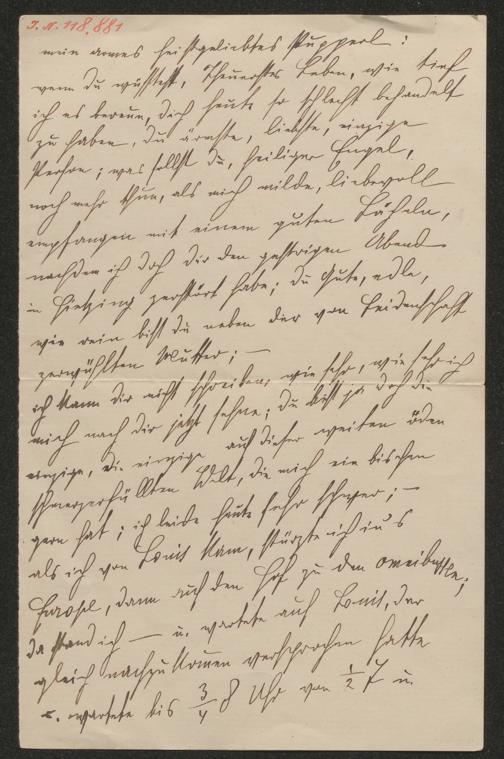 I.N. 118.881
mein armes heißgeliebtes Pupperl!
wenn du wüßtest, theuerstes Leben, wie tief
ich es bereue, dich heute so schlecht behandelt
zu haben, du ärmste, liebste, einzige
Person; was sollst du, heiliger Engel,
noch mehr thun, als mich milde, liebevoll
empfangen mit einem guten Lächeln,
nachdem ich doch dir den gestrigen Abend
in Hietzing zerstört habe; du gute, edle,
wie rein bist du neben der von Leidenschaft
zerwühlten Mutter; —
ich kann dir nicht schreiben, wie sehr, wie sehr ich
mich nach dir jetzt sehne; du bist ja doch die
einzige, die einzige auf dieser weiten öden
schmerzerfüllten Welt, die mich ein bischen
gern hat; ich leide heute sehr schwer; —
als ich von Louis kam, stürzte ich in's
dann auf den Hof zu den
da stand ich — u. wartete auf Louis, der
gleich nachzukommen versprochen hatte
u. wartete bis 3/4 8 Uhr von 1/2 7 u.